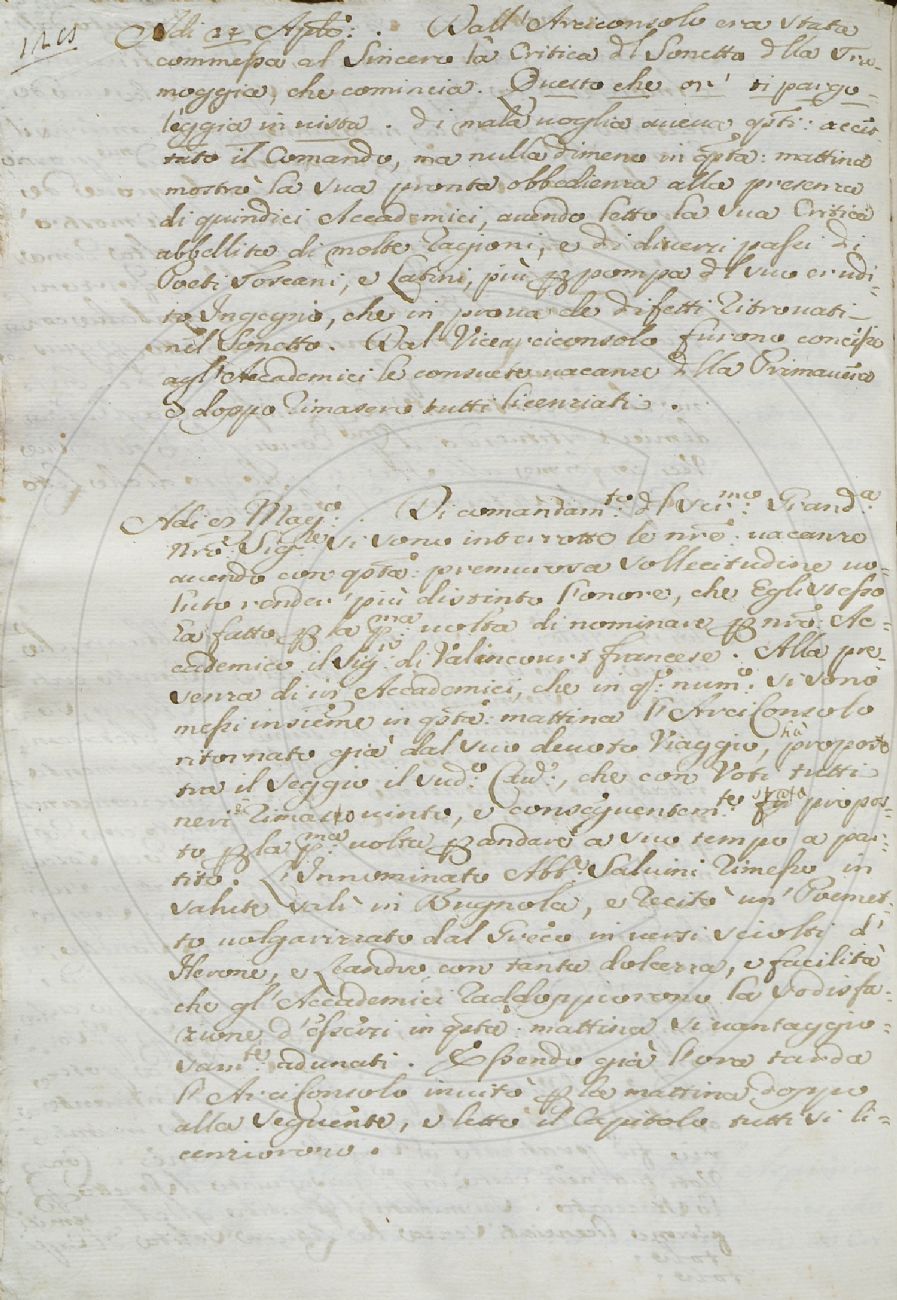 Adi 27 Aple: . Dall' Arciconsolo era stata
commessa al Sincero la Critica dl Sonetto dlla Tra-
moggia, che comincia. Questo che or' ti pargo-
leggia in vista. di mala voglia aveva qsti: accet-
tato il Comando, ma nulla dimeno in qsta: mattina
mostrò la sua pronta obbedienza alla presenza
di quindici Accademici, avendo letto la sua Critica
abbellita di molte ragioni, e di diversi passi di
Poeti Toscani, e Latini, più p pompa dl suo erudi-
to Ingegno, che in prova de difetti ritrovati
nel Sonetto. Dal Vicearciconsolo furono concesse
agl' Accademici le consuete vacanze dlla Primavera
e doppo rimasero tutti licenziati .
Adi Mago: . Di comandamto: dl Sermo: Grandа:
nro: Sigre si sono interrotte le nre: vacanze
avendo con qsta: premurosa sollecitudine vo-
luto render' più distinto l'onore, che Egli stesso
fa fatto p la pma: volta di nominare p nro: Ac-
cademico il Sigr: di Valincourt francese. Alla pre-
senza di Accademici, che in qso: numo: si sono
messi insieme in qsta: mattina l'Arciconsolo
ritornato già dal suo devoto Viaggio, hà propos
tra il seggio il sudo: Cavo:, che con Voti tutti
neri è rimasto vinto, e conseguentemte: stato propos-
to p la pma: volta p andare a suo tempo a par-
tito. L'Innominato Abbe: Salvini rimesso in
salute salì in Bugnola, e recitò un' Poemet-
to volgarizzato dal Greco in versi sciolti d'
Herone, e Leandro con tanta dolcezza, e facilità
che gl' Accademici raddoppiorono la sodisfa-
zione d'essersi in qsta: mattina sì vantaggio-
samte: adunati. Essendo già l'ora tarda
l'Arciconsolo invitò p la mattina doppo
alla seguente, e letto il Capitolo tutti si li-
cenziorono .